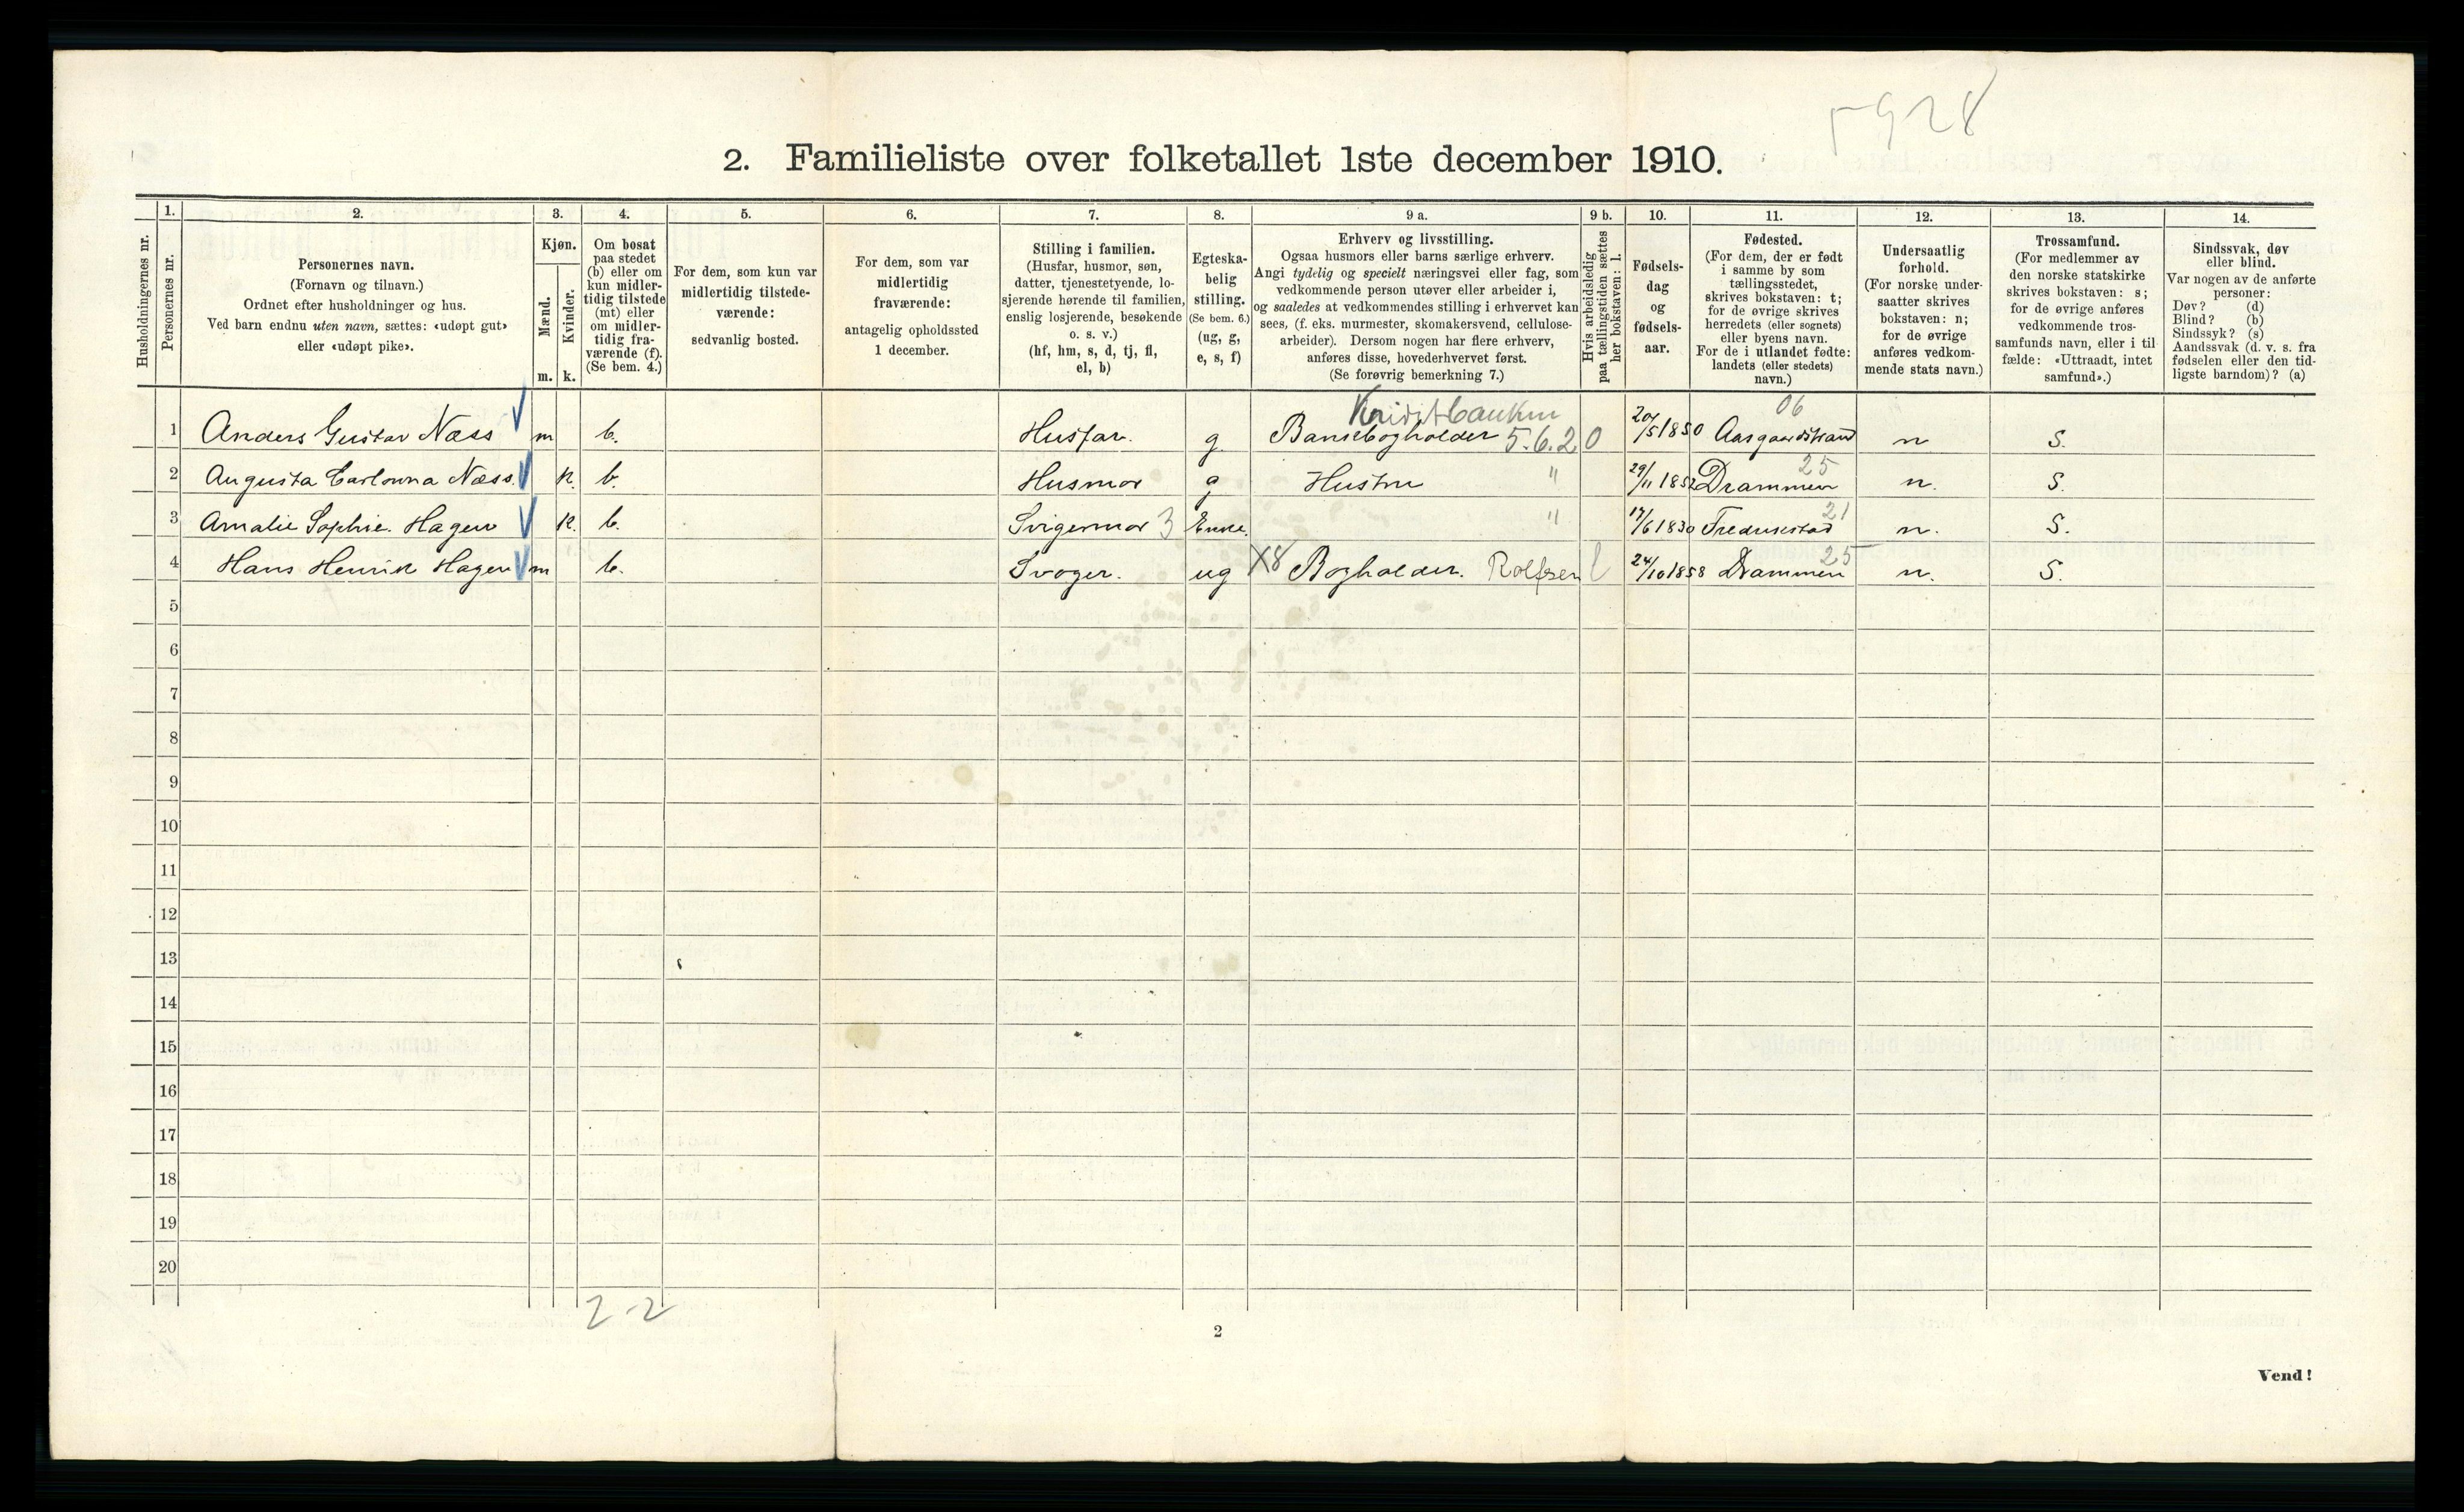 5928
2. Familieliste over folketallet 1ste december 1910.
Husholdningernes nr.
1.
Personernes nr.
2.
Personernes navn.
(Fornavn og tilnavn.)
Ordnet efter husholdninger og hus.
Ved barn endnu uten navn, sættes: «udøpt gut»
eller «udøpt pike».
3.
Kjøn.
Mænd.
Kvinder.
m. k.
4.
Om bosat
paa stedet
(b) eller om
kun midler-
tidig tilstede
(mt) eller
om midler-
tidig fra-
værende (f).
(Se bem. 4.)
5.
For dem, som kun var
midlertidig tilstede-
værende:
sedvanlig bosted.
6.
For dem, som var
midlertidig
fraværende:
antagelig opholdssted
1 december.
7.
Stilling i familien.
(Husfar, husmor, søn,
datter, tjenestetyende, lo-
sjerende hørende til familien,
enslig losjerende, besøkende
o. s. v.)
(hf, hm, s, d, tj, fl,
el, b)
8.
Egteska-
belig
stilling.
(Se bem. 6.)
(ug, g,
e, s, f)
9 a.
Erhverv og livsstilling.
Ogsaa husmors eller barns særlige erhverv.
Angi tydelig og specielt næringsvei eller fag, som
vedkommende person utøver eller arbeider i,
og saaledes at vedkommendes stilling i erhvervet kan
sees, (f. eks. murmester, skomakersvend, cellulose-
arbeider). Dersom nogen har flere erhverv,
anføres disse, hovederhvervet først.
(Se forøvrig bemerkning 7.)
9 b.
Hvis arbeidsledig
paa tællingstiden sættes
her bokstaven: l.
10.
Fødsels-
dag
og
fødsels-
aar.
11.
Fødested.
(For dem, der er født
i samme by som
tællingsstedet,
skrives bokstaven: t;
for de øvrige skrives
herredets (eller sognets)
eller byens navn.
For de i utlandet fødte:
landets (eller stedets)
navn.)
12.
Undersaatlig
forhold.
(For norske under-
saatter skrives
bokstaven: n;
for de øvrige
anføres vedkom-
mende stats navn.)
13.
Trossamfund.
(For medlemmer av
den norske statskirke
skrives bokstaven: s;
for de øvrige anføres
vedkommende tros-
samfunds navn, eller i til-
fælde: «Uttraadt, intet
samfund».)
14.
Sindssvak, døv
eller blind.
Var nogen av de anførte
personer:
Døv? (d)
Blind? (b)
Sindssyk? (s)
Aandssvak (d. v. s. fra
fødselen eller den tid-
ligste barndom)? (a)
06
1 Anders Gustav Næss m b. Husfar. g. Bankebogholder 5.6.20 20/5 1850 Aasgaardstrand n S.
2 Augusta Næss. k. b. Husmor g Hustru " 29/11 1852 Drammen 25 n. S.
3 Amalie Sophie Hagen k. b. Svigermor 3 Enke. " 17/6 1830 Fredrikstad 21 n. S.
4 Hans Henrik Hagen m b. Svoger. ug X8 Bogholder. Rolfsen l 24/10 1858 Drammen 25 n. S.
5
6
7
8
9
10
11
12
13
14
15
16
17
18
19
20
2-2
2
Vend!